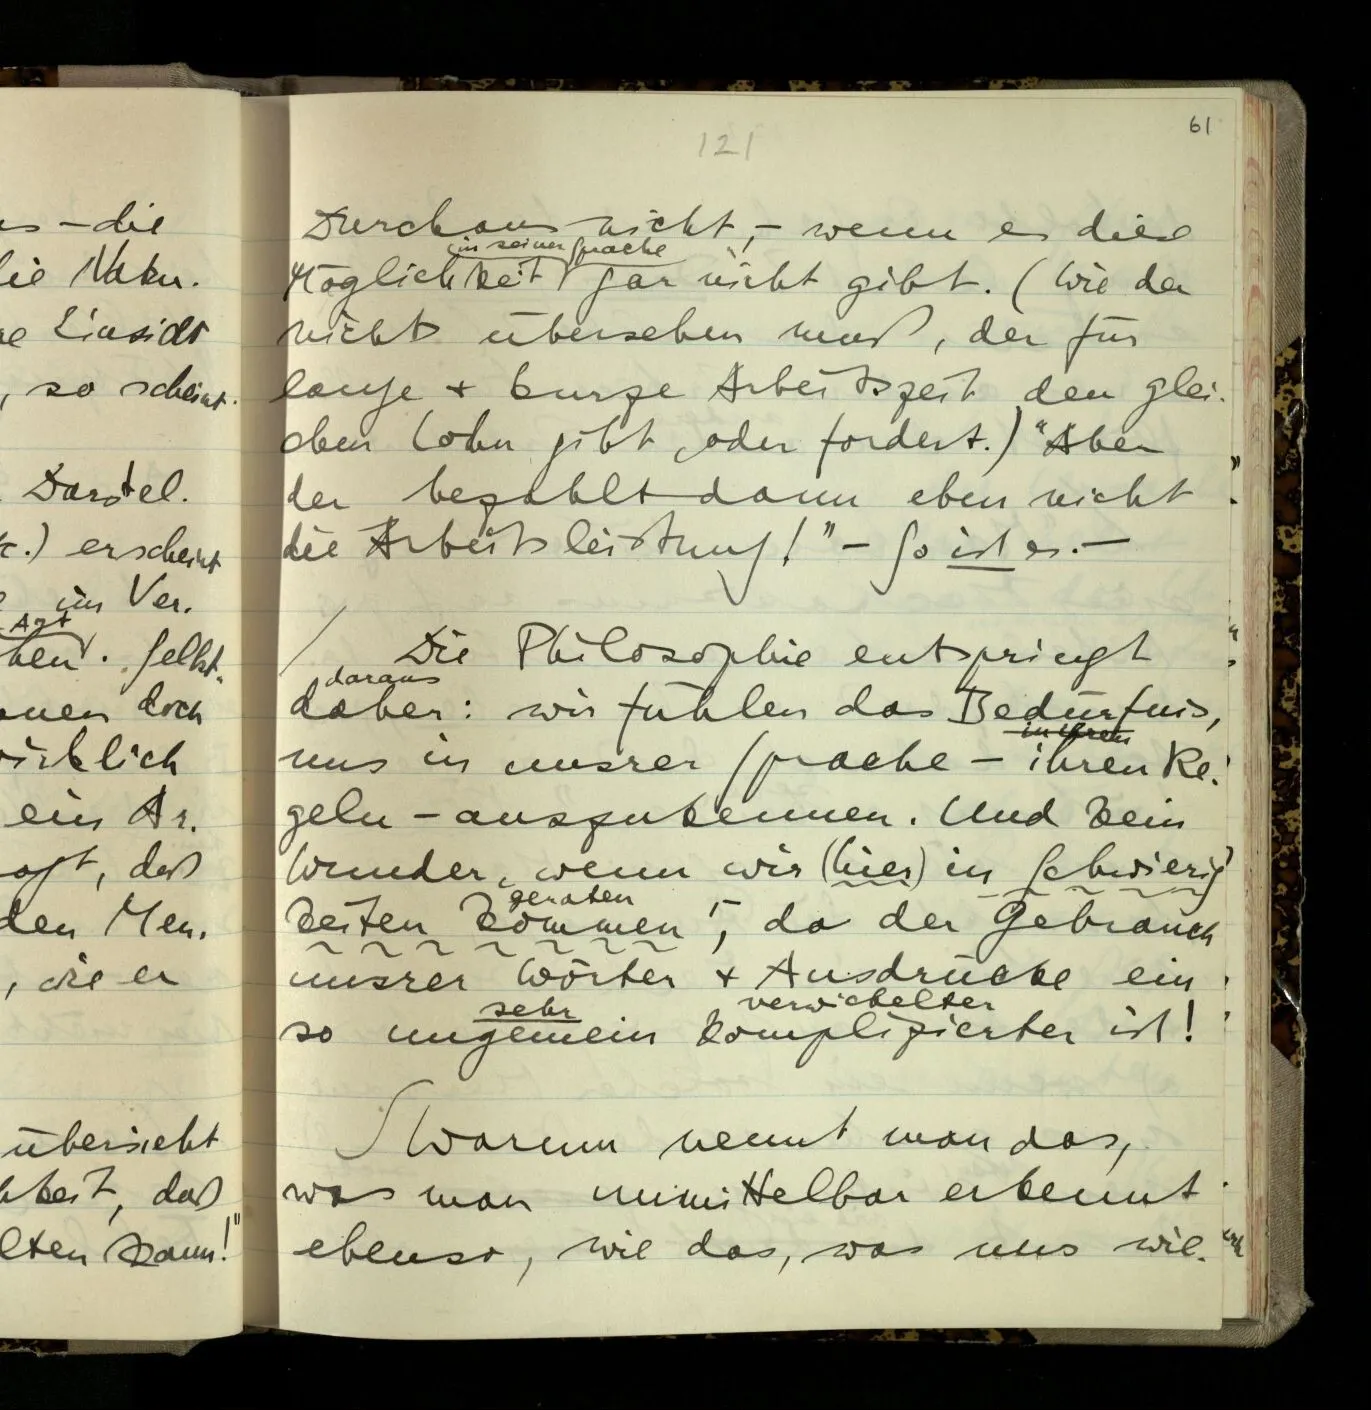 61
121
– die
die Natur.
Einsicht
, so scheint.
Darstel.
.) erscheint
im Ver.
Art
hen . Selbst.
doch
wirklich
ein Ar.
, daß
den Men.
, die er
übersieht
, daß
kann!"
Durchaus nicht, – wenn es diese
in seiner Sprache
Möglichkeit gar nicht gibt. (Wie der
nichts übersehen muß, der für
lange + kurze Arbeitszeit den glei-
chen Lohn gibt, oder fordert.) "Aber
der bezahlt dann eben nicht
die Arbeitsleistung!" – So ist es. –
/ Die Philosophie entspringt
daraus
daher: wir fühlen das Bedürfnis,
in ihren
uns in unsrer Sprache – ihren Re-
geln – auszukennen. Und kein
Wunder, wenn wir (hier) in Schwierig
geraten
keiten kommen, – da der Gebrauch
unsrer Wörter + Ausdrücke ein
sehr verwickelter
so ungemein komplizierter ist!
∫ Warum nennt man das,
was man unmittelbar erkennt
ebenso, wie das, was uns wie-